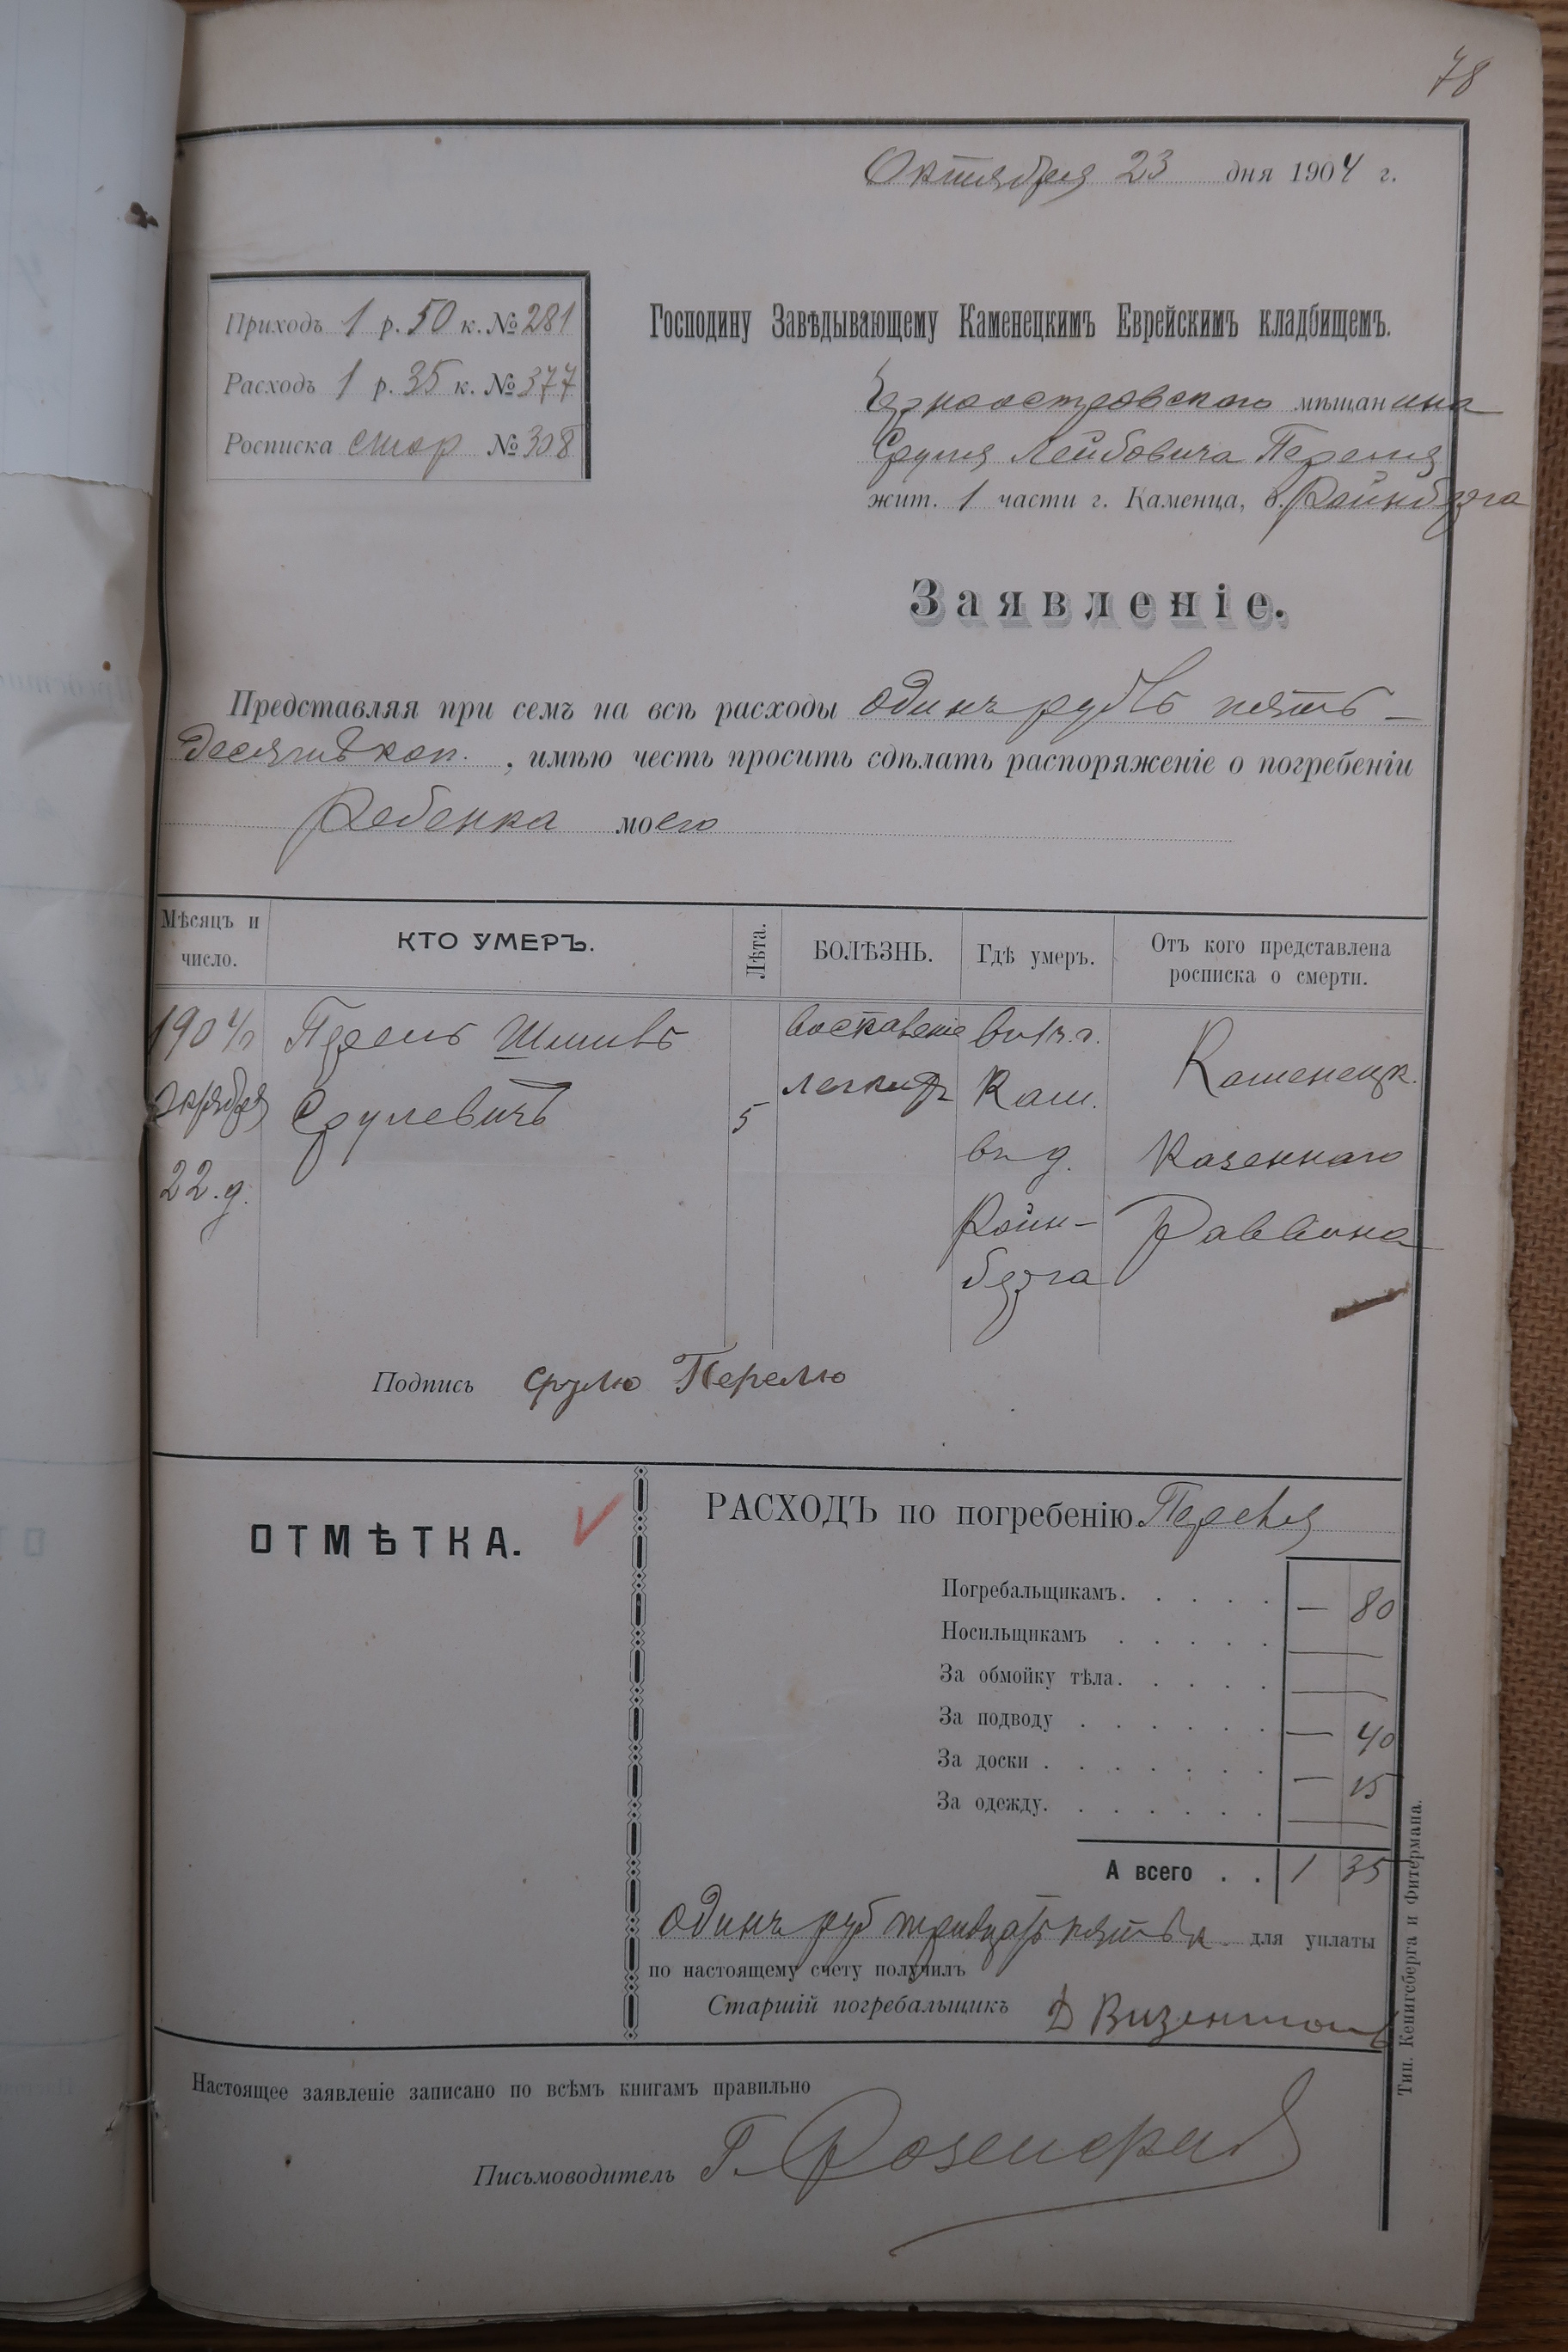 78
Октября 23 дня 1904 г.
Приходъ 1 р. 50 к. № 281
Расходъ 1 р. 35 к. № 377
Росписка стор № 308
Господину Завѣдывающему Каменецкимъ Еврейскимъ кладбищемъ.
Черноостровскаго мѣщанина
Сруля Лейбовича Переля
жит. 1 части г. Каменца, д. Ройнберга
Заявленіе.
Представляя при семъ на всѣ расходы одинъ рубль пять-
десять коп. , имѣю честь просить сдѣлать распоряженіе о погребеніи
Ребенка моего
Мѣсяцъ и число.
КТО УМЕРЪ.
Лѣта.
БОЛѢЗНЬ.
Гдѣ умеръ.
Отъ кого представлена росписка о смерти.
1904 г.
октября
22 д.
Перель
Срулевичъ
5
воспаленіе
легкихъ
въ 1 ч. г.
Кам.
въ д.
Ройн-
берга
Каменецк.
Казеннаго
Раввина
Подпись Срулю Перелю
ОТМѢТКА.
РАСХОДЪ по погребенію Переля
Погребальщикамъ. . . . . — 80
Носильщикамъ . . . . . —
За обмойку тѣла. . . . . —
За подводу . . . . . . — 40
За доски . . . . . . . — 15
За одежду. . . . . . . —
А всего . . 1 35
одинъ руб тридцать пять к. для уплаты
по настоящему счету получилъ
Старшій погребальщикъ Д Визенталь
Настоящее заявленіе записано по всѣмъ книгамъ правильно
Письмоводитель Г.
Тип. Кенигсберга и Фитермана.